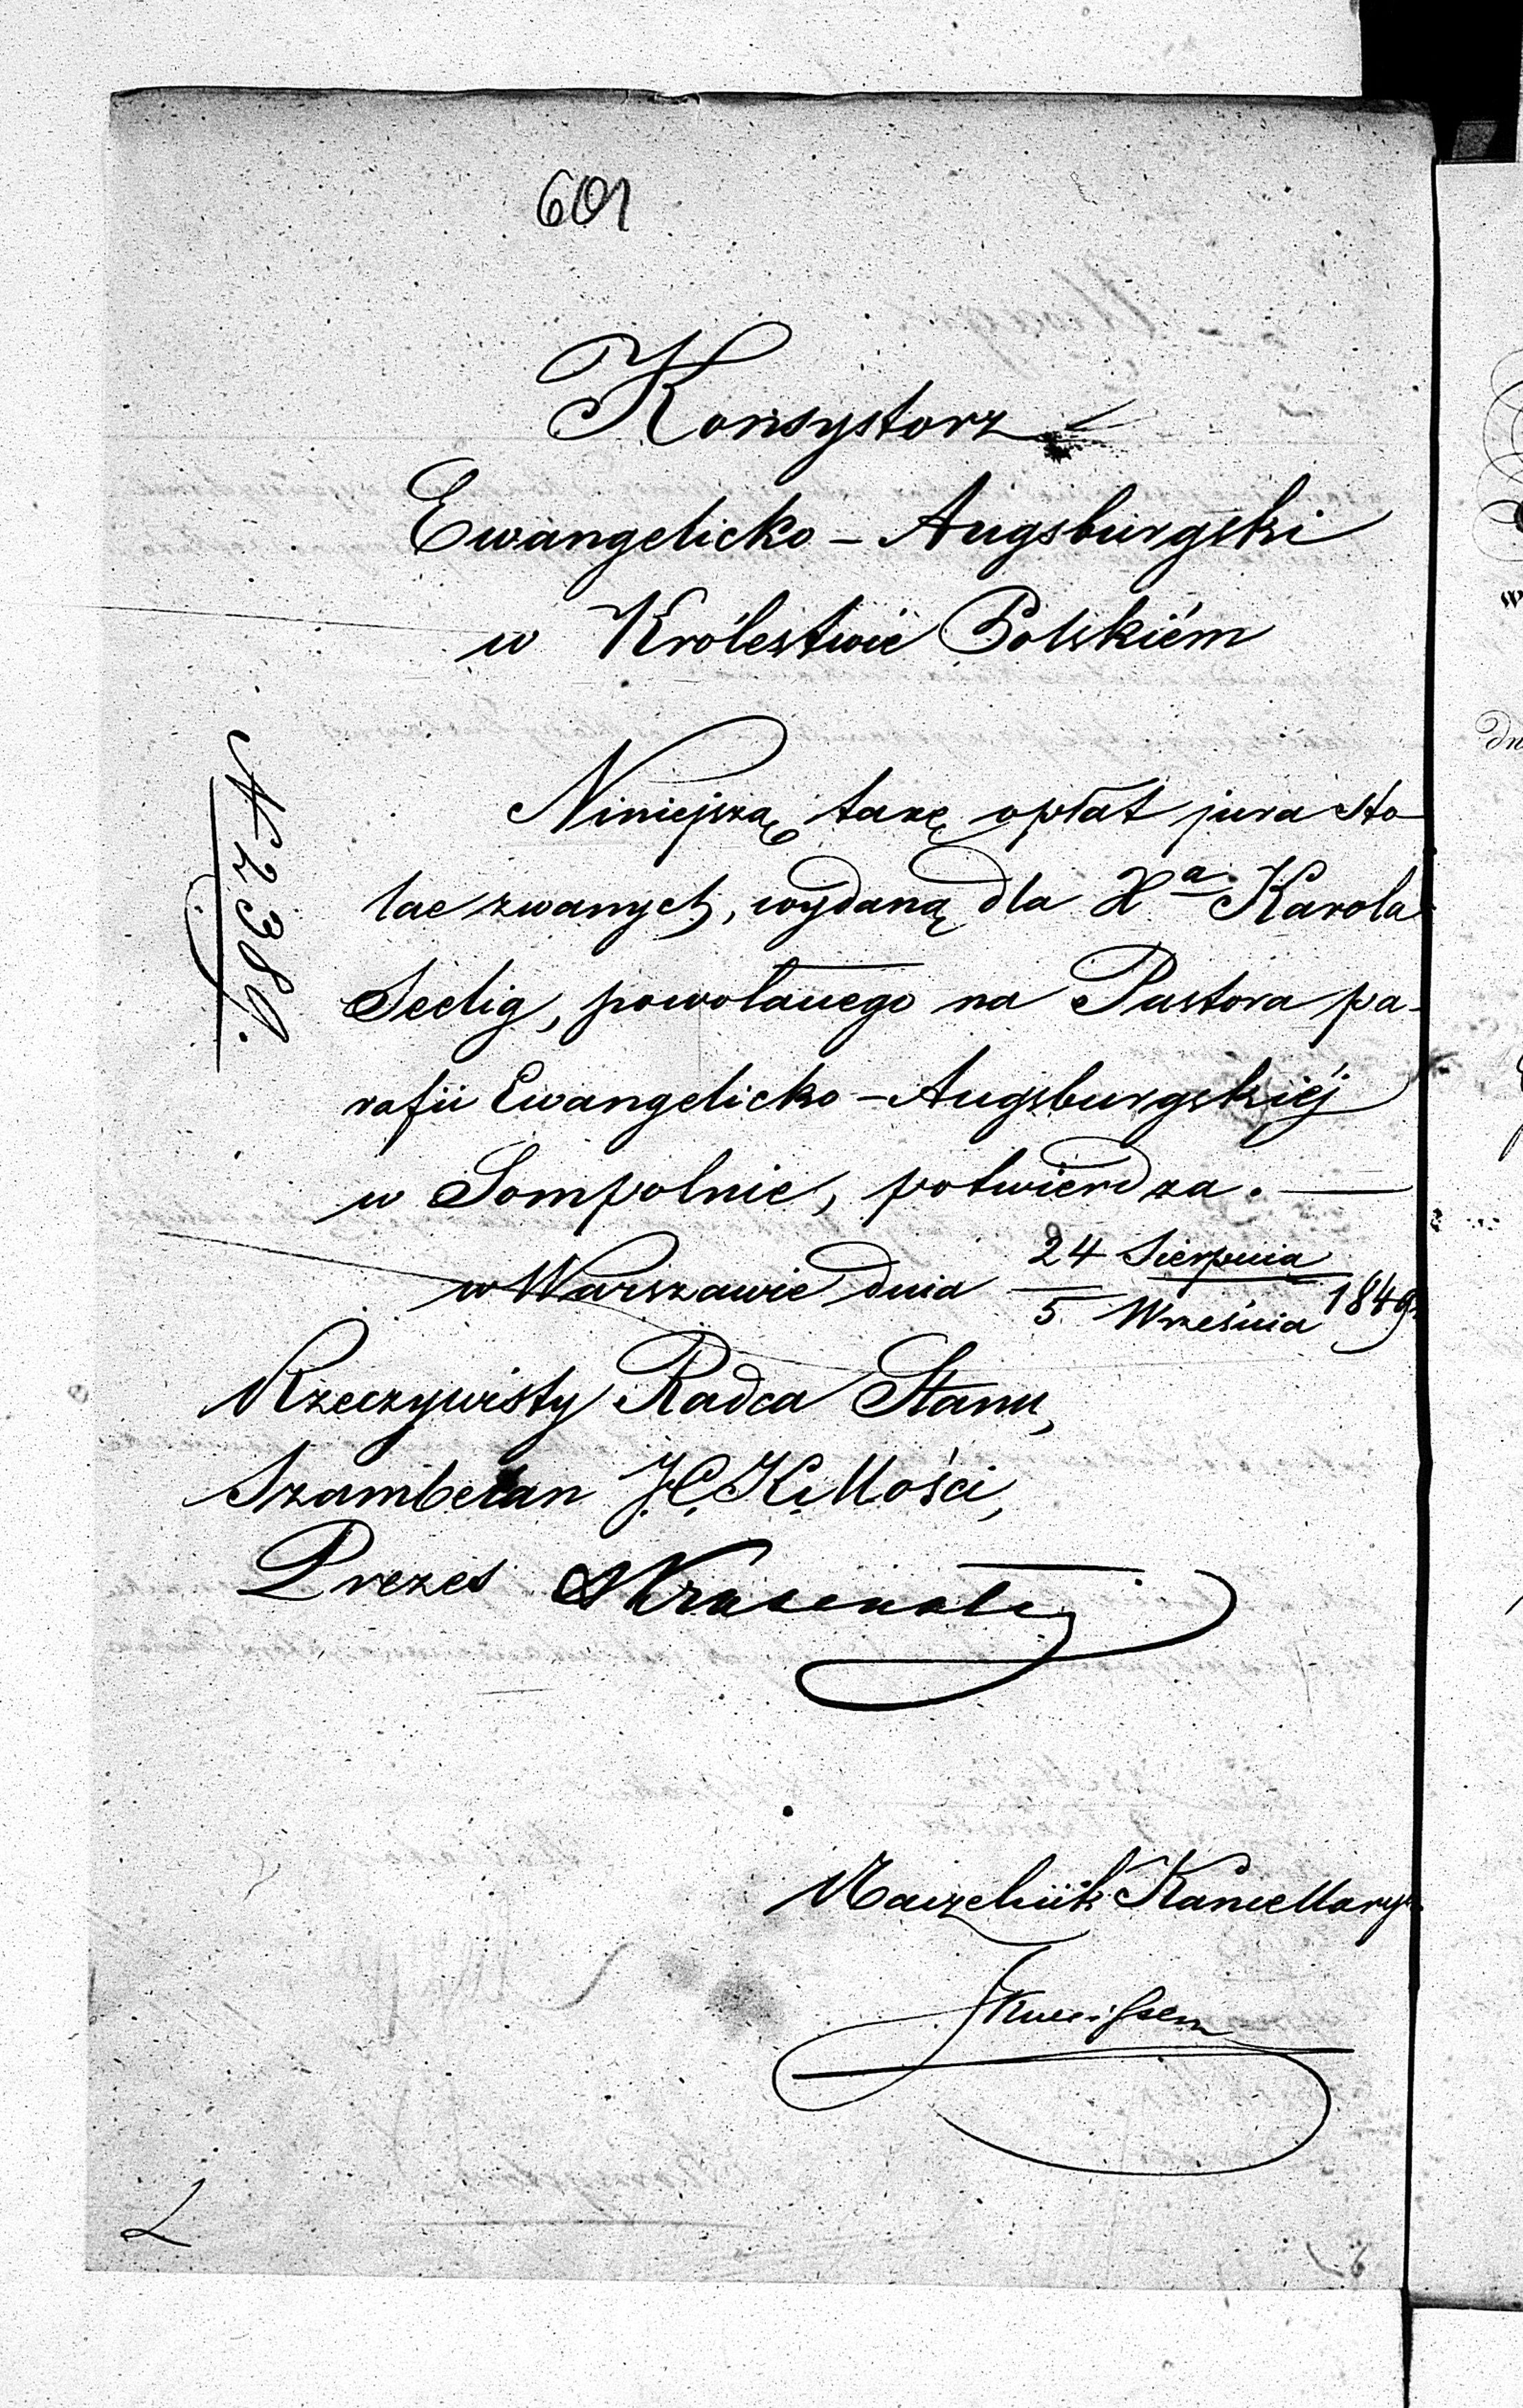 601
Konsystorz
Ewangelicko - Augsburgski
w Królestwie Polskiém
N 2389.
Niniejszą taxę opłat jura sto
lae zwanych, wydaną dla Xa Karola
Sedig, powołanego na Pastora pa-
rafii Ewangelicko - Augsburgskiéj
w Sompolnie, potwierdza. —
w Warszawie dnia 24 Sierpnia
5 Września 1849.
Rzeczywisty Radca Stanu,
Szambelan J.C.K.Mości,
Prezes
Naczelnik Kancellaryi